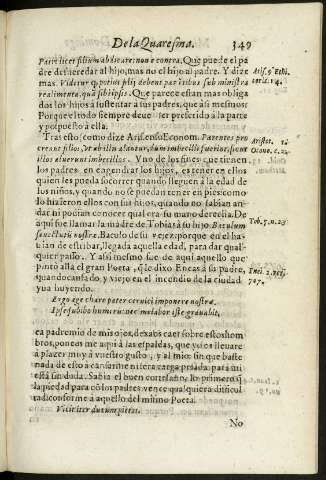 De la Quaresma. 349
Patri licet filium abdicare: non e contra. Que puede el pa
dre desheredar al hijo, mas no el hijo al padre. Y dize
mas. Videtur q̃ potius filij debent parẽtibus sub ministra
re alimenta, quã sibi ipsis. Que parece estan mas obliga
dos los hijos a sustentar a sus padres, que a si mesmos:
Porque el todo siempre deue ser preferido a la parte
y pospuesto a ella.
Tras esto (como dize Arist. en su Econom. Parentes pro
creant filios
illos aluerunt imbecillos. Y no de los fines, que tienen
los padres en engendrar los hijos, es tener en ellos
quien les pueda socorrer quando lleguen a la edad de
los niños, y quando no se puedan tener en pies: como
lo hizieron ellos con sus hijos, quando no sabian an-
dar ni podian conocer qual era su mano derecha. De
aqui fue llamar la madre de Tobias a su hijo: Baculum
senectutis nostræ. Baculo de su vejez: porque en el ha-
uian de estribar, llegada aquella edad, para dar qual-
quier passo. Y assi mesmo fue de aqui aquello que
pintò alla el gran Poeta, q̃ le dixo Eneas a su padre,
quando cansado, y viejo en el incendio de la ciudad
yua huyendo.
Ergo age chare pater ceruici imponere nostræ.
Ipse subibo humeris: nec me labor iste grauabit,
ea padre mio de mis ojos, dexaos caer sobre estos hom
bros, poneos me aqui a las espaldas, que yo os lleuare
a plazer muy a vuestro gusto, y al mio: sin que baste
nada de esto a cansarme ni sera carga pesada para mi
esta sin duda. Sabia el buen cortesano, lo primero q̃
la piedad para cõ los padres vence qualquiera dificul
tad conforme a aquello del mismo Poeta.
Vicit iter durum pietas.
No
Arist. 9 Ethi
cor. c. 14.
Aristot.
Oecon. c. 2.
Tob. 5. n. 23
Enei. 2. vers.
707.